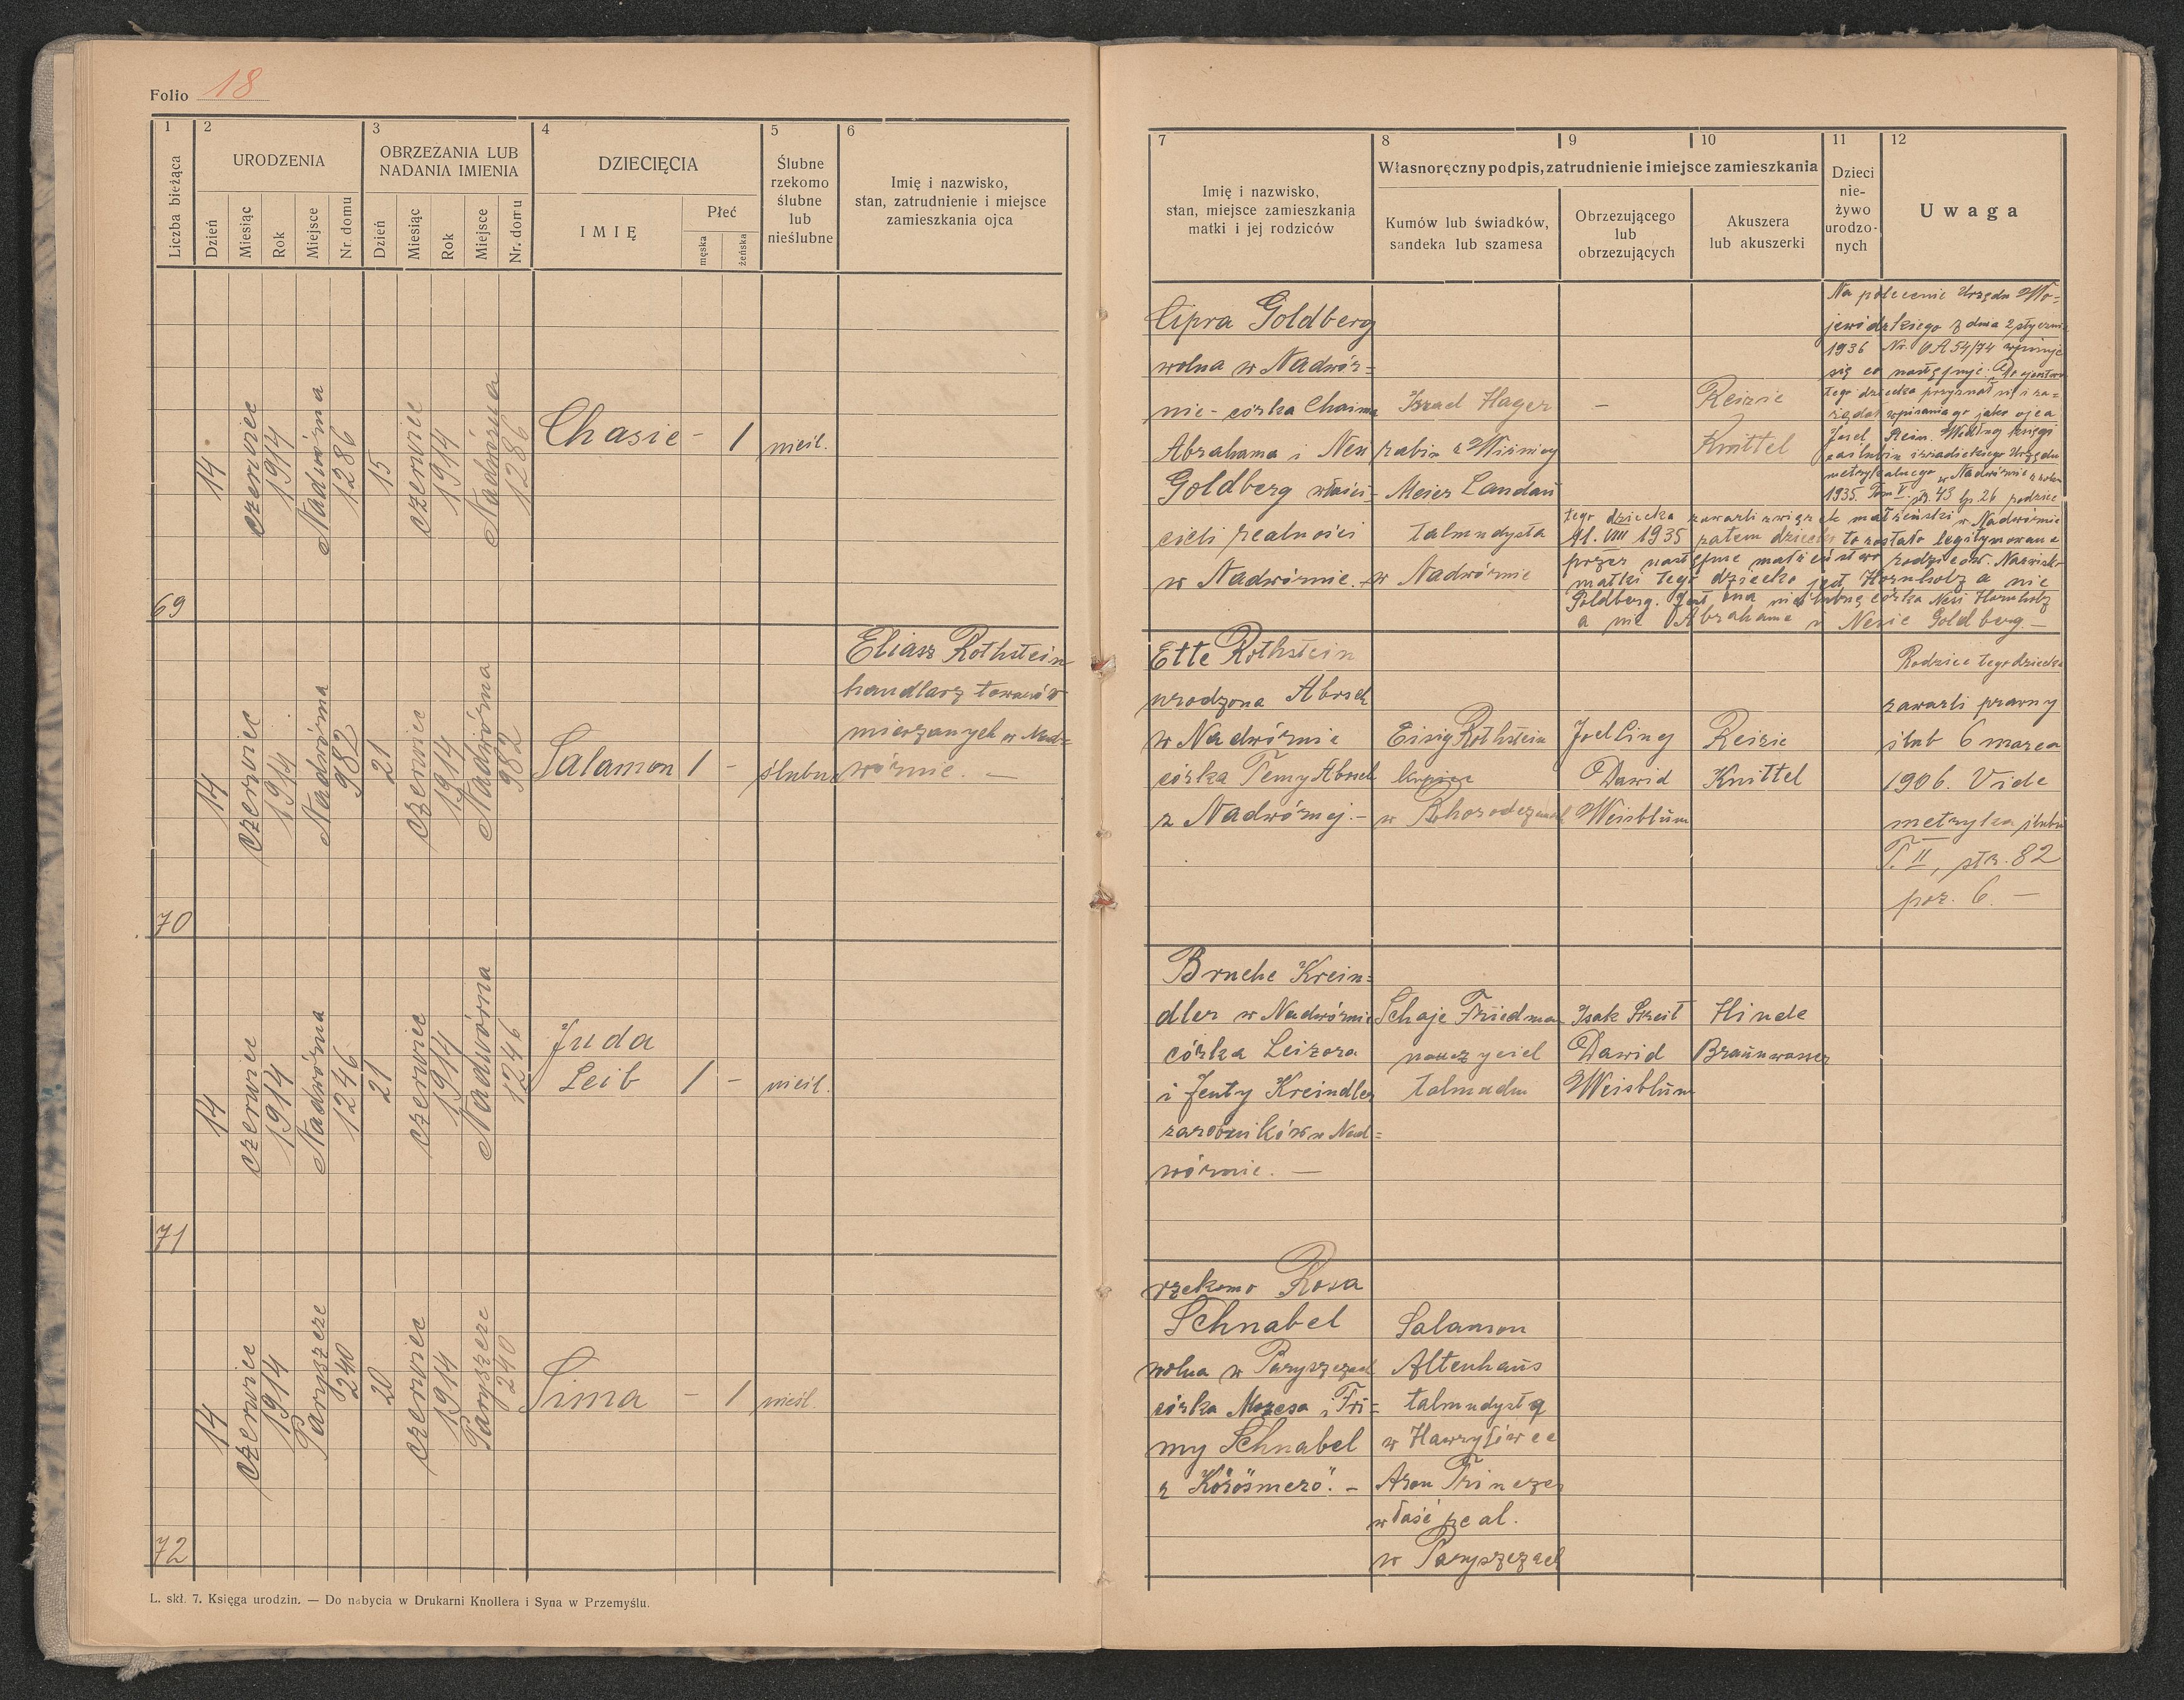 Folio 18
1
2
3
4
5
6
Liczba bieżąca
URODZENIA
OBRZEZANIA LUB
NADANIA IMIENIA
DZIECIĘCIA
Ślubne
rzekomo
ślubne
lub
nieślubne
Imię i nazwisko,
stan, zatrudnienie i miejsce
zamieszkania ojca
Dzień
Miesiąc
Rok
Miejsce
Nr. domu
Dzień
Miesiąc
Rok
Miejsce
Nr. domu
IMIĘ
Płeć
męska
żeńska
69
14
czerwiec
1914
Nadwórna
1286
15
czerwiec
1914
Nadwórna
1286
Chasie - 1
nieśl.
70
14
czerwiec
1914
Nadwórna
982
21
czerwiec
1914
Nadwórna
982
Salamon 1 -
ślubne
Eliasz Rothstein
handlarz towarów
mieszanych w Nad=
wórnie. —
71
14
czerwiec
1914
Nadwórna
1246
21
czerwiec
1914
Nadwórna
1246
Juda
Leib 1 -
nieśl.
72
14
czerwiec
1914
Paryszcze
240
20
czerwiec
1914
Paryszcze
240
Sima - 1
nieśl.
L. skł. 7. Księga urodzin. — Do nabycia w Drukarni Knollera i Syna w Przemyślu.
7
8
9
10
11
12
Imię i nazwisko,
stan, miejsce zamieszkania
matki i jej rodziców
Własnoręczny podpis, zatrudnienie i miejsce zamieszkania
Kumów lub świadków,
sandeka lub szamesa
Obrzezującego
lub
obrzezujących
Akuszera
lub akuszerki
Dzieci
nie-
żywo
urodzo-
nych
Uwaga
Cipra Goldberg
wolna w Nadwór=
nie - córka Chaima
Abrahama i Nesi
Goldberg właści-
cieli realności
w Nadwórnie. -
Izrael Hager
rabin z Wiżnicy
Meier Landau
talmudysta
w Nadwórnie
-
Reizie
Knittel
Na polecenie Urzędu Wo-
jewódzkiego z dnia 2 stycznia
1936 Nr. 54/74 wpisuje
się co następuje:
tego dziecka przyznał się i za-
żądał wpisania go jako ojca
Josel Według księgi
zaślubin izraelickiego Urzędu
metrykalnego w Nadwórnie z roku
1935. Tom V. str. 43 lp. 26 rodzice
tego dziecka zawarli związek małżeński w Nadwórnie
VIII 1935 zatem dziecko to zostało legitymowane
przez następne małżeństwo rodziców. Nazwisko
matki tego dziecka jest Hornholz a nie
Goldberg. Jest ona nieślubną córką Nesi Hornholz
a nie Abrahama i Nesie Goldberg. —
Ette Rothstein
urodzona Abosch
w Nadwórnie
córka Temy Abosch
z Nadwórnej. -
Eisig Rothstein
kupiec
w Bohorodczanach
Joel Ling
Dawid
Weisblum
Reizie
Knittel
Rodzice tego dziecka
zawarli prawny
ślub 6 marca
1906. Vide
metryka ślubu
T. II, str. 82
poz. 6. —
Bruche Krein=
dler w Nadwórnie
córka Leizora
i Jenty Kreindler
zarobników w Nad=
wórnie. —
Schaje Friedman
nauczyciel
talmudu
Isak Streit
Dawid
Weisblum
Hinde
Braunwasser
rzekomo Rosa
Schnabel
wolna w Paryszczach
córka Mozesa i Fri=
my Schnabel
z Körösmerö. -
Salamon
Altenhaus
talmudystą
w Hawryłówce
Aron Trinczer
właśc real.
w Paryszczach